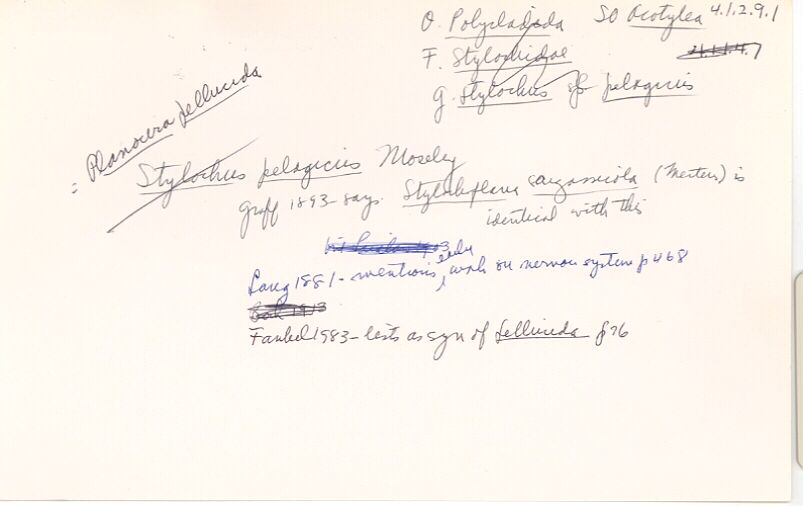 O. Polycladida SO Acotylea 4.1.2.9.1
F. Stylochidae
G. Stylochus sp pelagicus
= Planocera pellucida
Stylochus pelagicus Moseley
Graff 1893 - says. Stylochoplana sargassicola (Mertens) is
identical with this
Lang 1881 - mentions early work on nervous system p 68
Faubel 1983 - lists as syn of pellucida p76